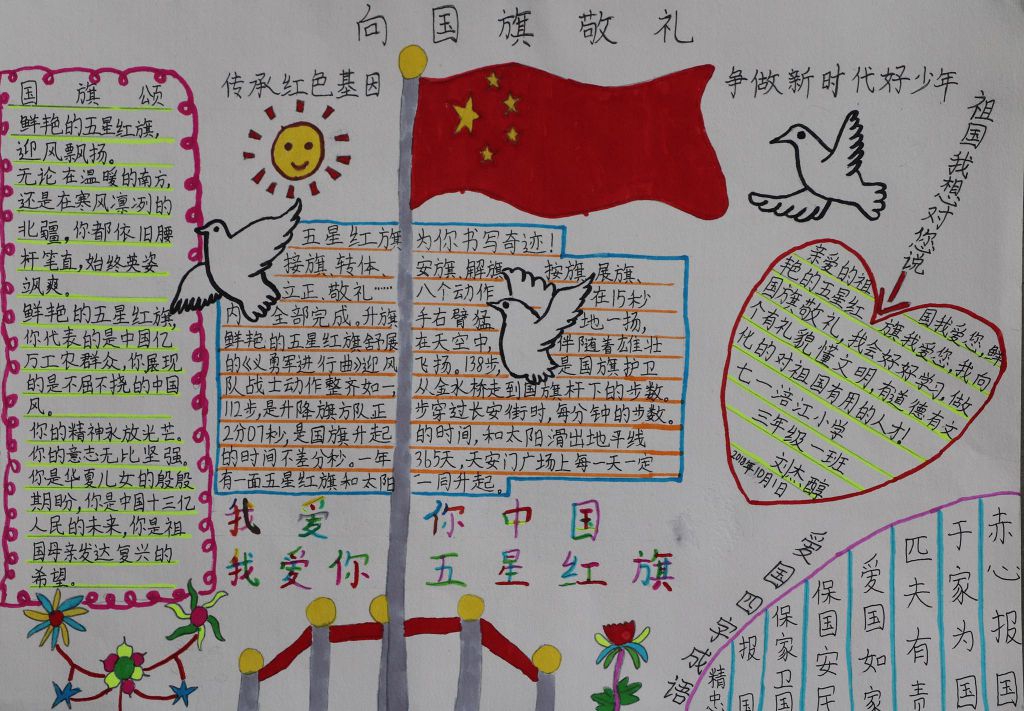 向国旗敬礼
传承红色基因
争做新时代好少年
国旗颂
鲜艳的五星红旗,
迎风飘扬。
无论在温暖的南方,
还是在寒风凛冽的
北疆,你都依旧腰
杆笔直,始终英姿
飒爽。
鲜艳的五星红旗,
你代表的是中国亿
万工农群众,你展现
的是不屈不挠的中国
风。
你的精神永放光芒。
你的意志无比坚强。
你是华夏儿女的殷殷
期盼,你是中国十三亿
人民的未来,你是祖
国母亲发达复兴的
希望。
五星红旗为你书写奇迹!
接旗、转体、安旗、解旗、按旗、展旗、
立正、敬礼……八个动作在15秒
内全部完成。升旗手右臂猛地一扬,
鲜艳的五星红旗舒展在天空中,伴随着雄壮
的《义勇军进行曲》迎风飞扬。138步,是国旗护卫
队战士动作整齐如一,从金水桥走到国旗杆下的步数。
112步,是升降旗方队正步穿过长安街时,每分钟的步数。
2分07秒,是国旗升起的时间,和太阳滑出地平线
的时间不差分秒。一年365天,天安门广场上每一天一定
有一面五星红旗和太阳一同升起。
我爱你中国
我爱你五星红旗
祖国我想对您说
亲爱的祖国我爱您,鲜
艳的五星红旗我爱您,我向
国旗敬礼,我会好好学习,做
个有礼貌懂文明,有道德有文
化的对祖国有用的人才。
七一涪江小学
三年级一班
刘杰醇
2018年10月1日
爱国四字成语
精忠
报国
保家卫国
保国安民
爱国如家
匹夫有责
于家为国
赤心报国